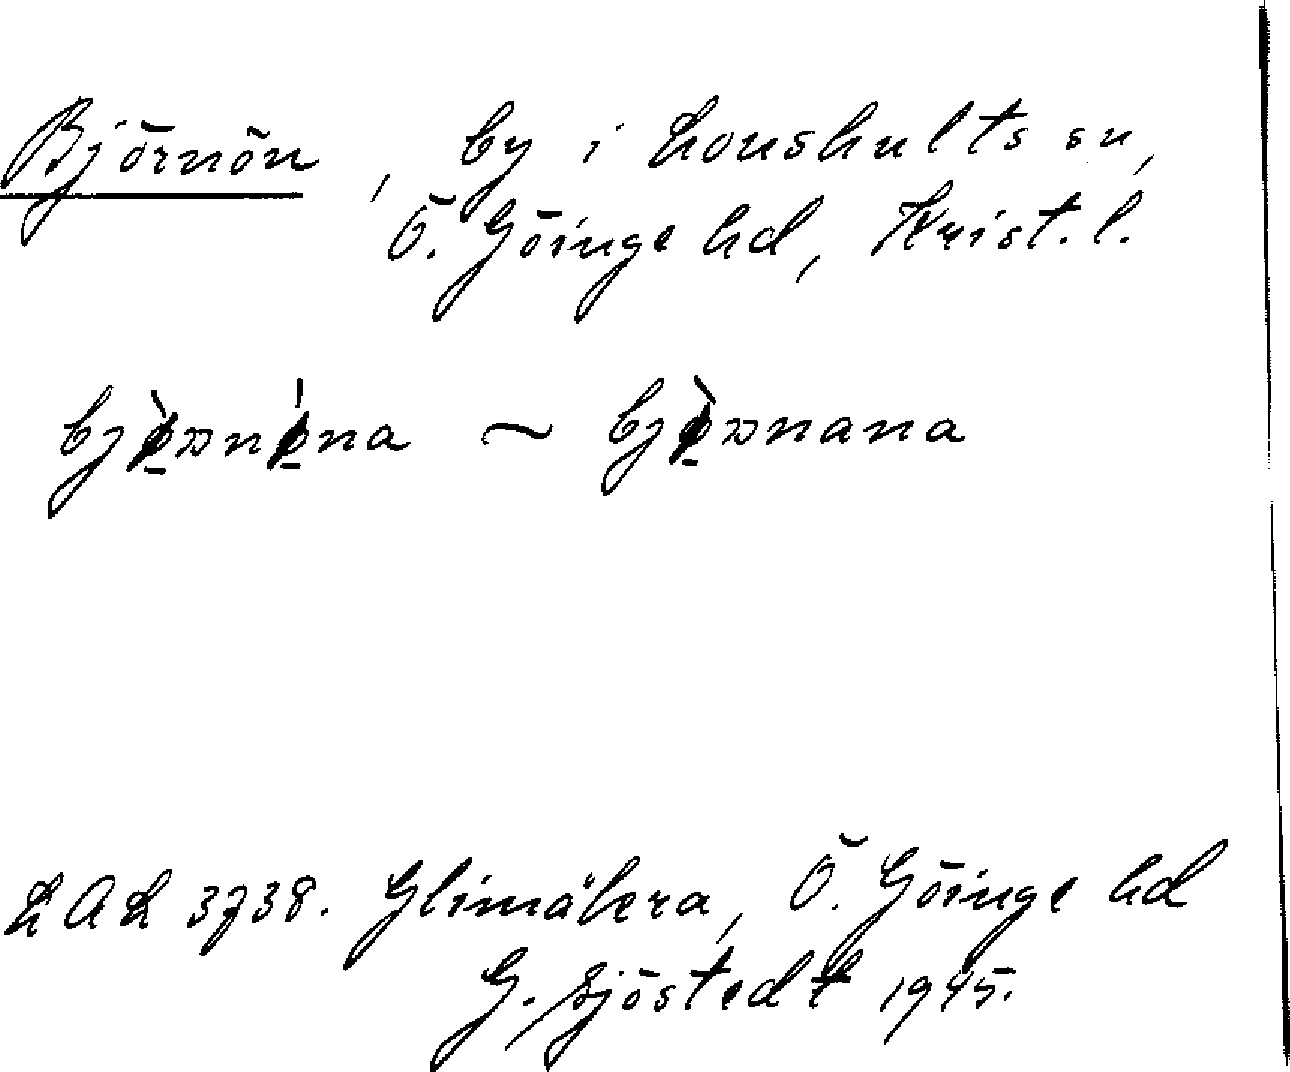 Björnön, by i Loushults sn,
Ö. Göinge hd, Krist. l.
bjø̠̀ʀnǿ̠na ~ bjø̠̀ʀnana
LAL 3738. Glimåkra, Ö. Göinge hd
G. Sjöstedt 1945.